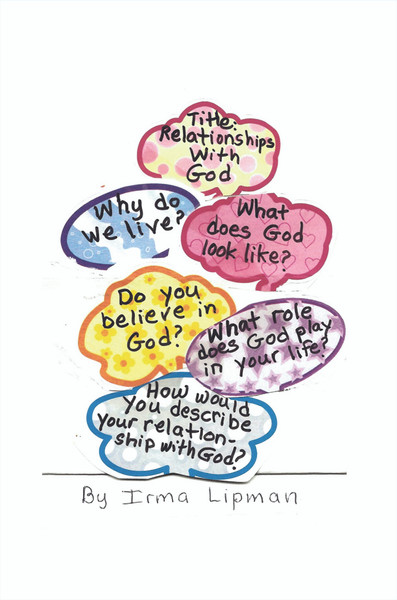 Title:
Relationships
With
God
Why do
we live?
What
does God
look like?
Do you
believe in
God?
What role
does God play
in your life?
How would
you describe
your relation-
ship with God?
By Irma Lipman